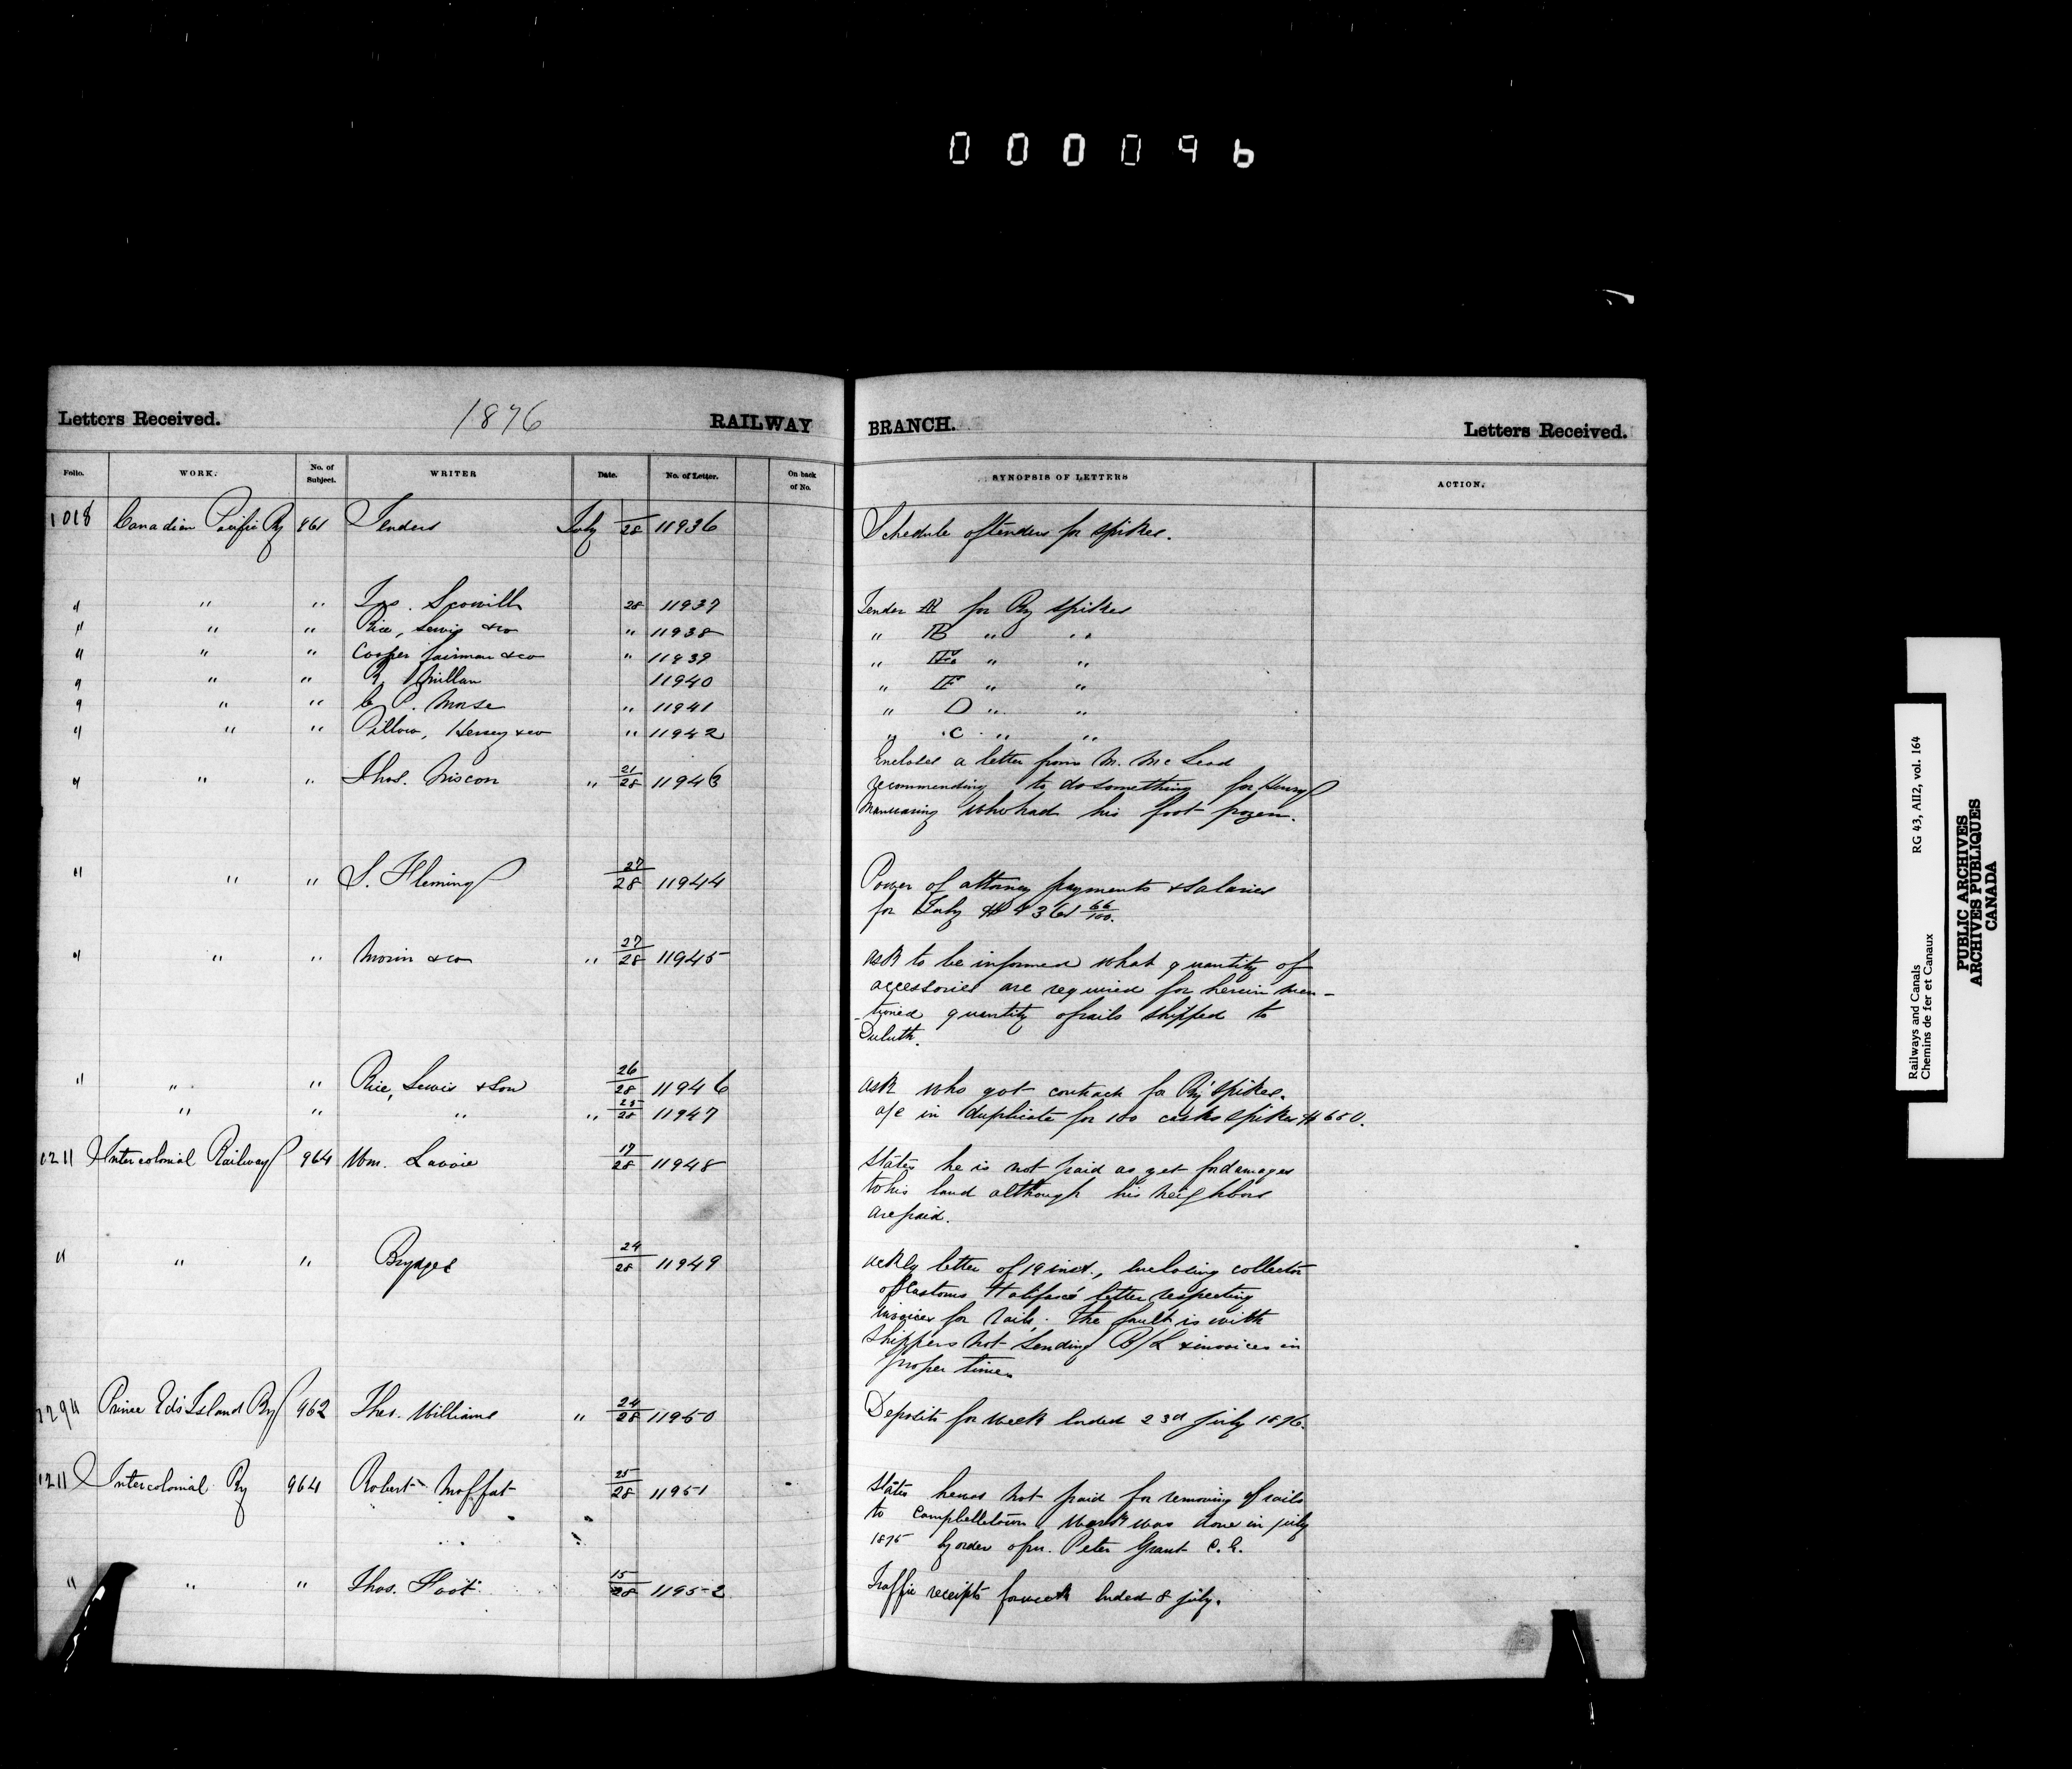 000096
Letters Received. 1876 RAILWAY BRANCH. Letters Received.
Folio. WORK. No. of Subject. WRITER Date. No. of Letter. On back of No. SYNOPSIS OF LETTERS ACTION.
1018 Canadian Pacific Ry 861 Tenders July 28 11936 Schedule of tenders for spikes.
" " " Scovill 28 11937 Tender A for Ry spikes
" " " Rice, Lewis & co " 11938 " B " "
" " " Cooper fairman & co " 11939 " E " "
" " " R. Millan 11940 " F " "
" " " C P. Morse " 11941 " D " "
" " " Pillow, Hersey & co " 11942 " C " "
" " " Thos. Nixon " 21/28 11943 Encloses a letter from M. McLeod
recommending to do something for Henry
who had his foot frozen.
" " " S. Fleming 27/28 11944 Power of attorney payments & salaries
for July $ 4361 66/100.
" " " Morin & co " 27/28 11945 ask to be informed what quantity of
accessories are required for herein men-
-tioned quantity of rails shipped to
Duluth.
" " " Rice, Lewis & Son 26/28 11946 ask who got contract for Ry spikes.
" " " " 25/28 11947 a/c in duplicate for 100 casks spikes $ 650.
1211 Intercolonial Railway 964 Wm. Lavoie 17/28 11948 States he is not paid as yet for damages
to his land although his neighbors
are paid.
" " " Brydges 24/28 11949 ackly letter of 19 inst., enclosing collector
of Customs Halifax's letter respecting
invoices for rails. The fault is with
shippers not sending B/L & invoices in
proper time.
1294 Prince Ed's Island Ry 962 Thos. Williams " 24/28 11950 Deposits for week ended 23rd july 1876.
1211 Intercolonial Ry 964 Robert Moffat 25/28 11951 States he was not paid for removing of rails
to Campbelltown. Work was done in july
1875 by order of Mr. Peter Grant C.E.
" " " Thos. Foot 15/28 11952 Traffic receipts for week ended 8 july.
Railways and Canals RG 43, AII2, vol. 164
Chemins de fer et Canaux
PUBLIC ARCHIVES
ARCHIVES PUBLIQUES
CANADA